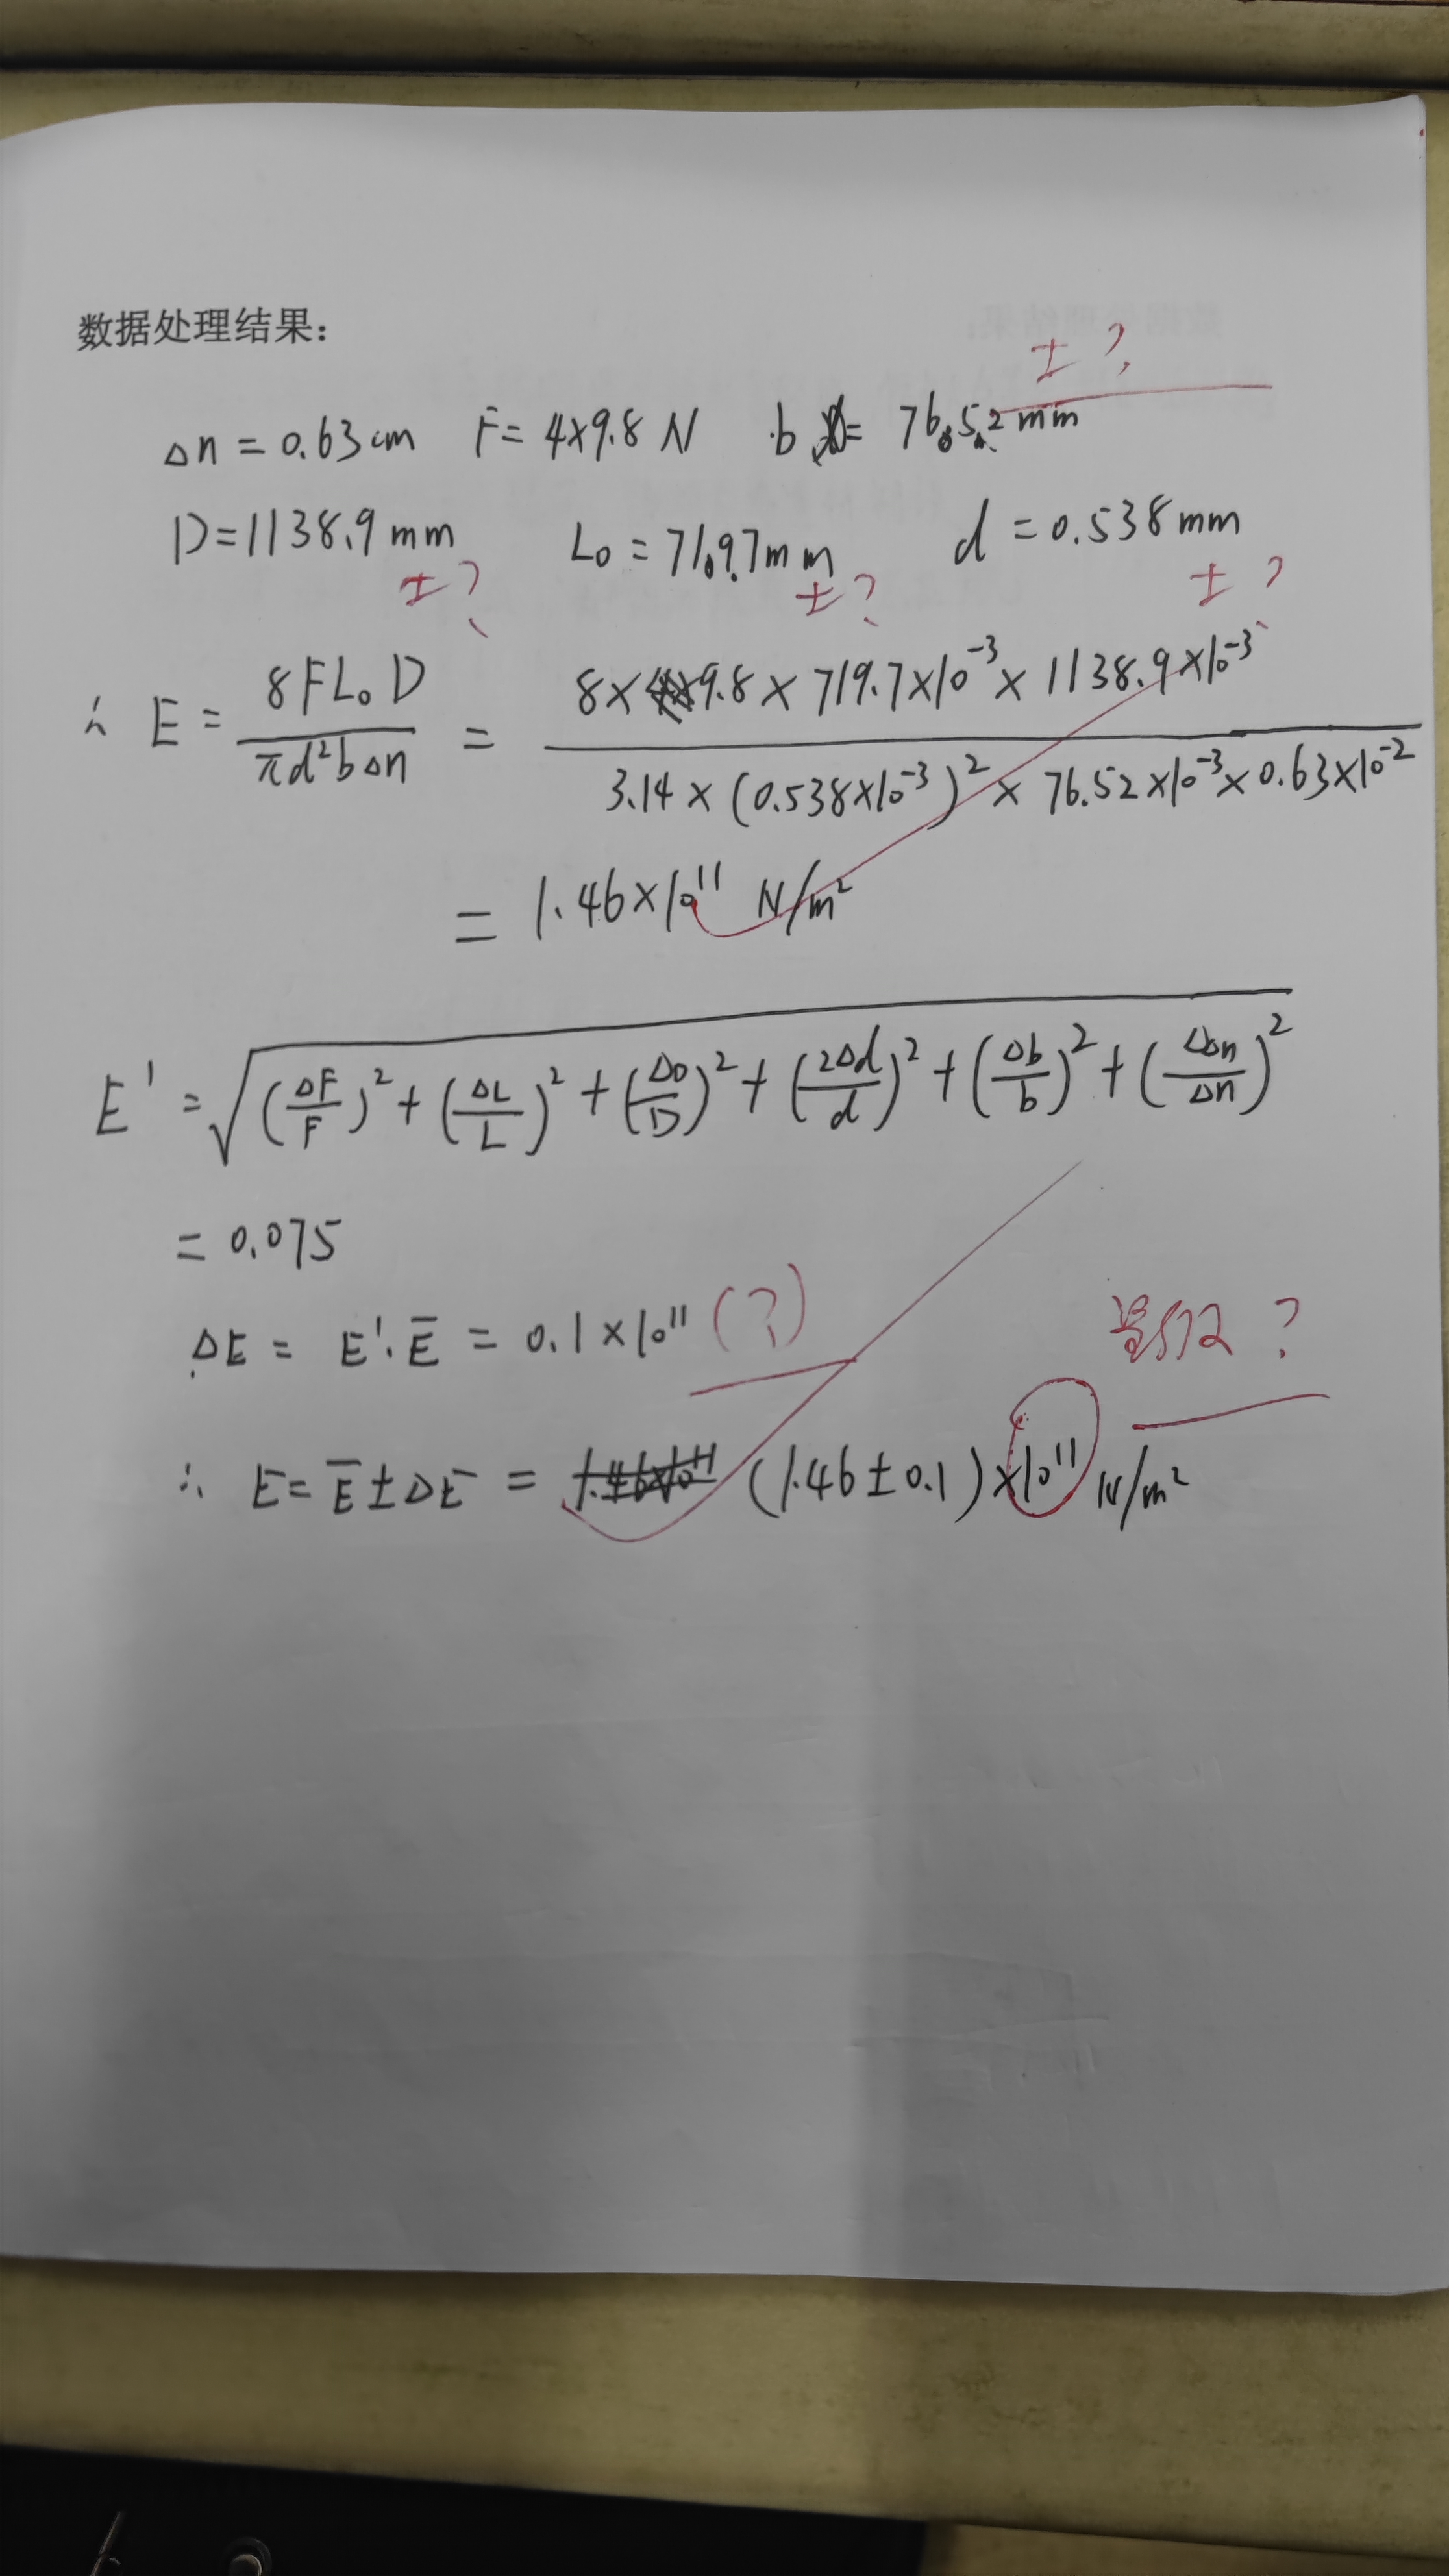 数据处理结果:
± ?
Δn = 0.63cm F = 4×9.8 N b = 76.52 mm
D = 1138.9 mm L₀ = 719.7mm d = 0.538mm
± ? ± ? ± ?
∴ E = 8FL₀D / πd²bΔn = 8×9.8×719.7×10⁻³×1138.9×10⁻³ / 3.14×(0.538×10⁻³)²×76.52×10⁻³×0.63×10⁻²
= 1.46×10¹¹ N/m²
E' = √((ΔF/F)²+(ΔL/L)²+(ΔD/D)²+(2Δd/d)²+(Δb/b)²+(ΔΔn/Δn)²)
= 0.075
ΔE = E'·E̅ = 0.1×10¹¹ (?)
?
∴ E = E̅±ΔE = (1.46±0.1)×10¹¹ N/m²